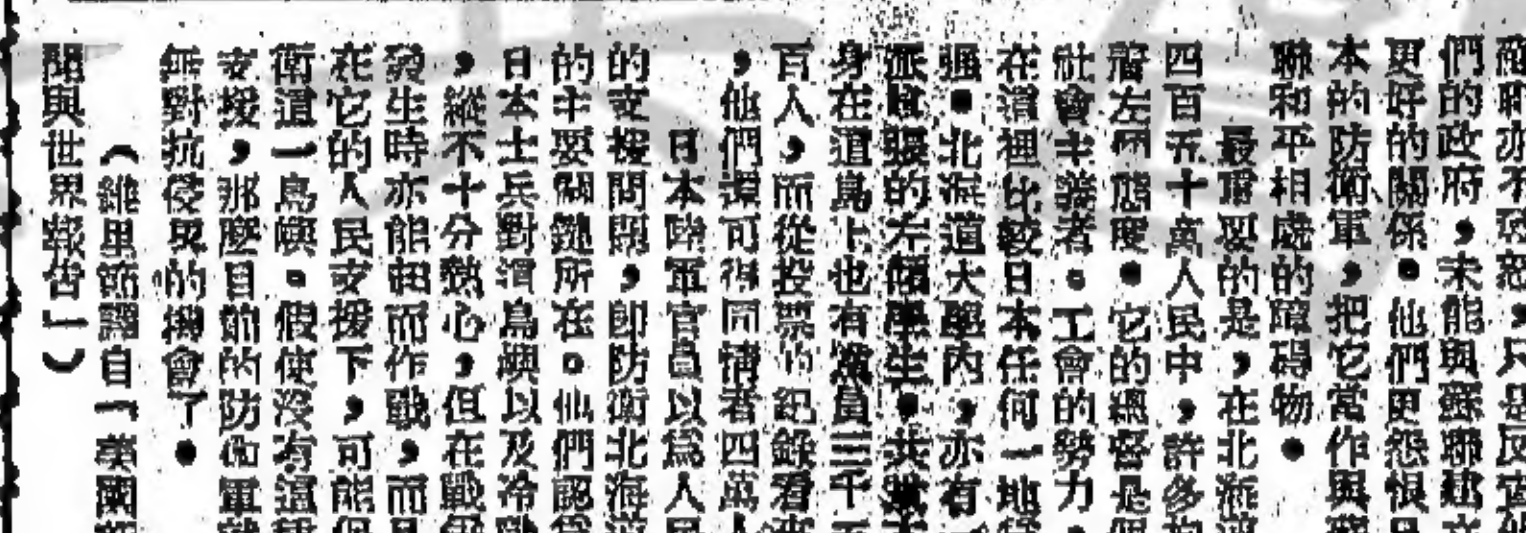 們的政府，未能與蘇聯建立
更好的關係。他們更怨恨日
本的防衛軍，把它當作與蘇
聯和平相處的障碍物。
最重要的是，在北海道
四百五十萬人民中，許多抱
着左傾態度。它的總督是個
社會主義者。工會的勢力，
在這裡比較日本任何一地爲
强。北海道大學內，亦有一
派囂張的左傾學生。共黨本
身在這島上也有黨員三千五
百人，所從投票的紀錄看來
，他們還可得同情者四萬人
日本陸軍官員以爲人民
的支援問題，卽防衛北海道
的主要關鍵所在。他們認爲
日本士兵對這島嶼以及冷戰
，縱不十分熱心，但在戰爭
發生時亦能起而作戰，而且
在它的人民支援下，可能保
衛這一島嶼。假使沒有這種
支援，那麽目前的防衛軍就
無對抗侵畧的機會了。
（維里節譯自「美國新
聞與世界報告」）